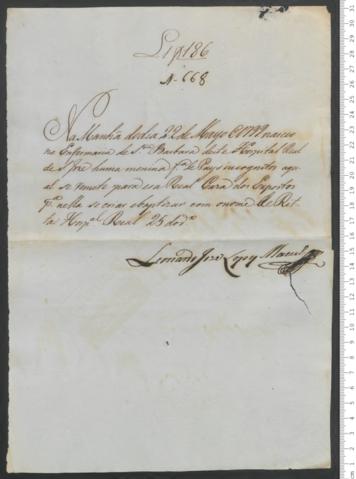 L 1 f 186
N. 668
Na Manhãa do dia 22 de Mayo 1799 nasceo
na Enfermaria de Sta Barbara deste Hospital Real
de S. Jozé huma menina fa de Pays incognitos a qual
se remete para essa Real Caza dos Expostos
pa nella se criar e baptizar com o nome de Rit
ta Hospal Real 25 do do
Leonardo Jozé Lopes